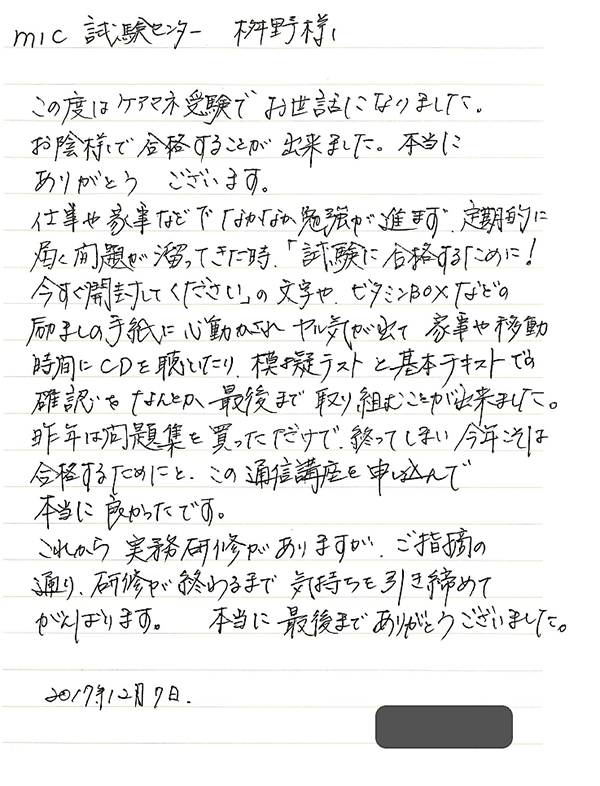 mic 試験センター 桝野様
この度はケアマネ受験で お世話になりました。
お陰様で 合格することが 出来ました。本当に
ありがとう ございます。
仕事や家事などで なかなか勉強が進まず、定期的に
届く問題が溜ってきた時、「試験に合格するために!
今すぐ開封してください」の文字や、ビタミンBOXなどの
励ましの手紙に心動かされ ヤル気が出て 家事や移動
時間にCDを聴いたり、模擬テストと基本テキストでの
確認をなんとか、最後まで取り組むことが出来ました。
昨年は問題集を買っただけで、終ってしまい 今年こそは
合格するためにと、この通信講座を申し込んで
本当に良かったです。
これから 実務研修がありますが、ご指摘の
通り、研修が終わるまで 気持ちを引き締めて
がんばります。 本当に最後までありがとうございました。
2017年12月7日.